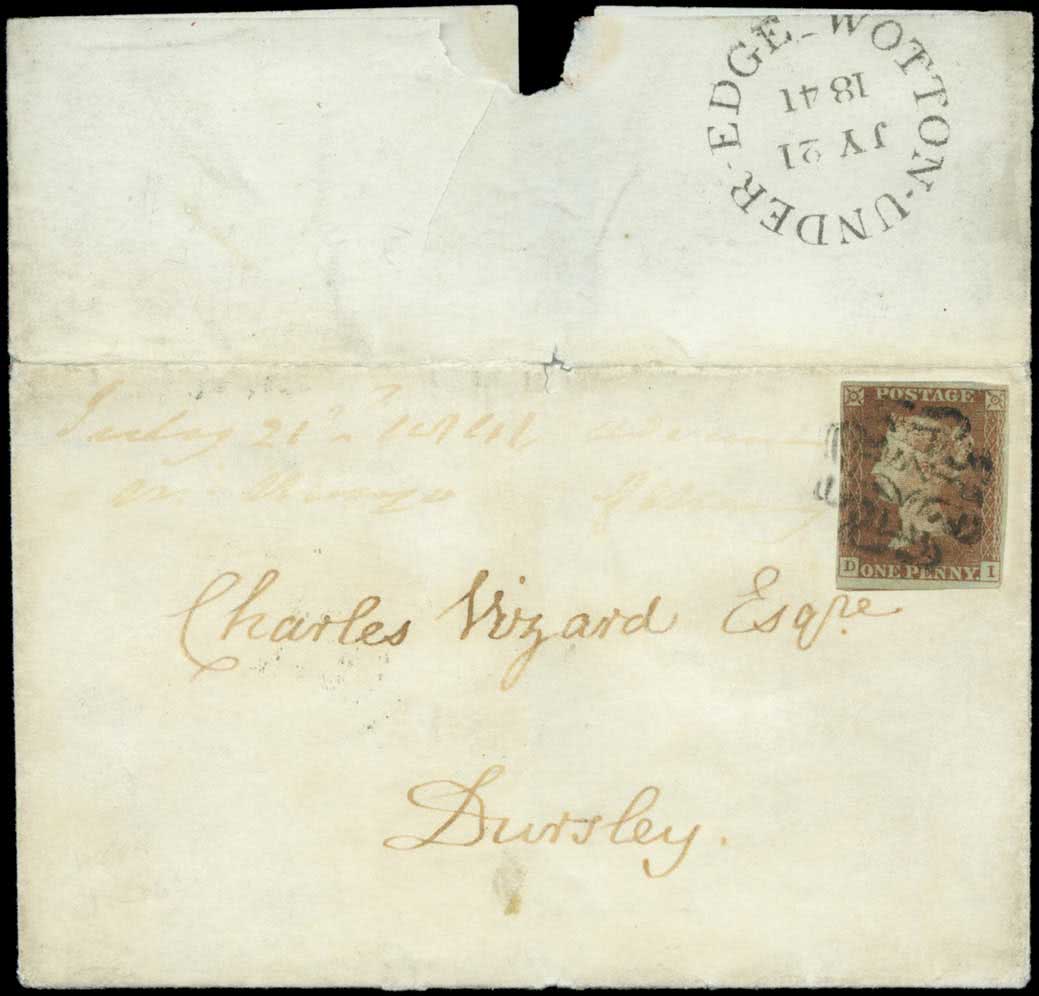 WOTTON-UNDER-EDGE
JY 21
1841
July 21
POSTAGE
D ONE PENNY. I
Charles Vizard Esqre
Dursley.